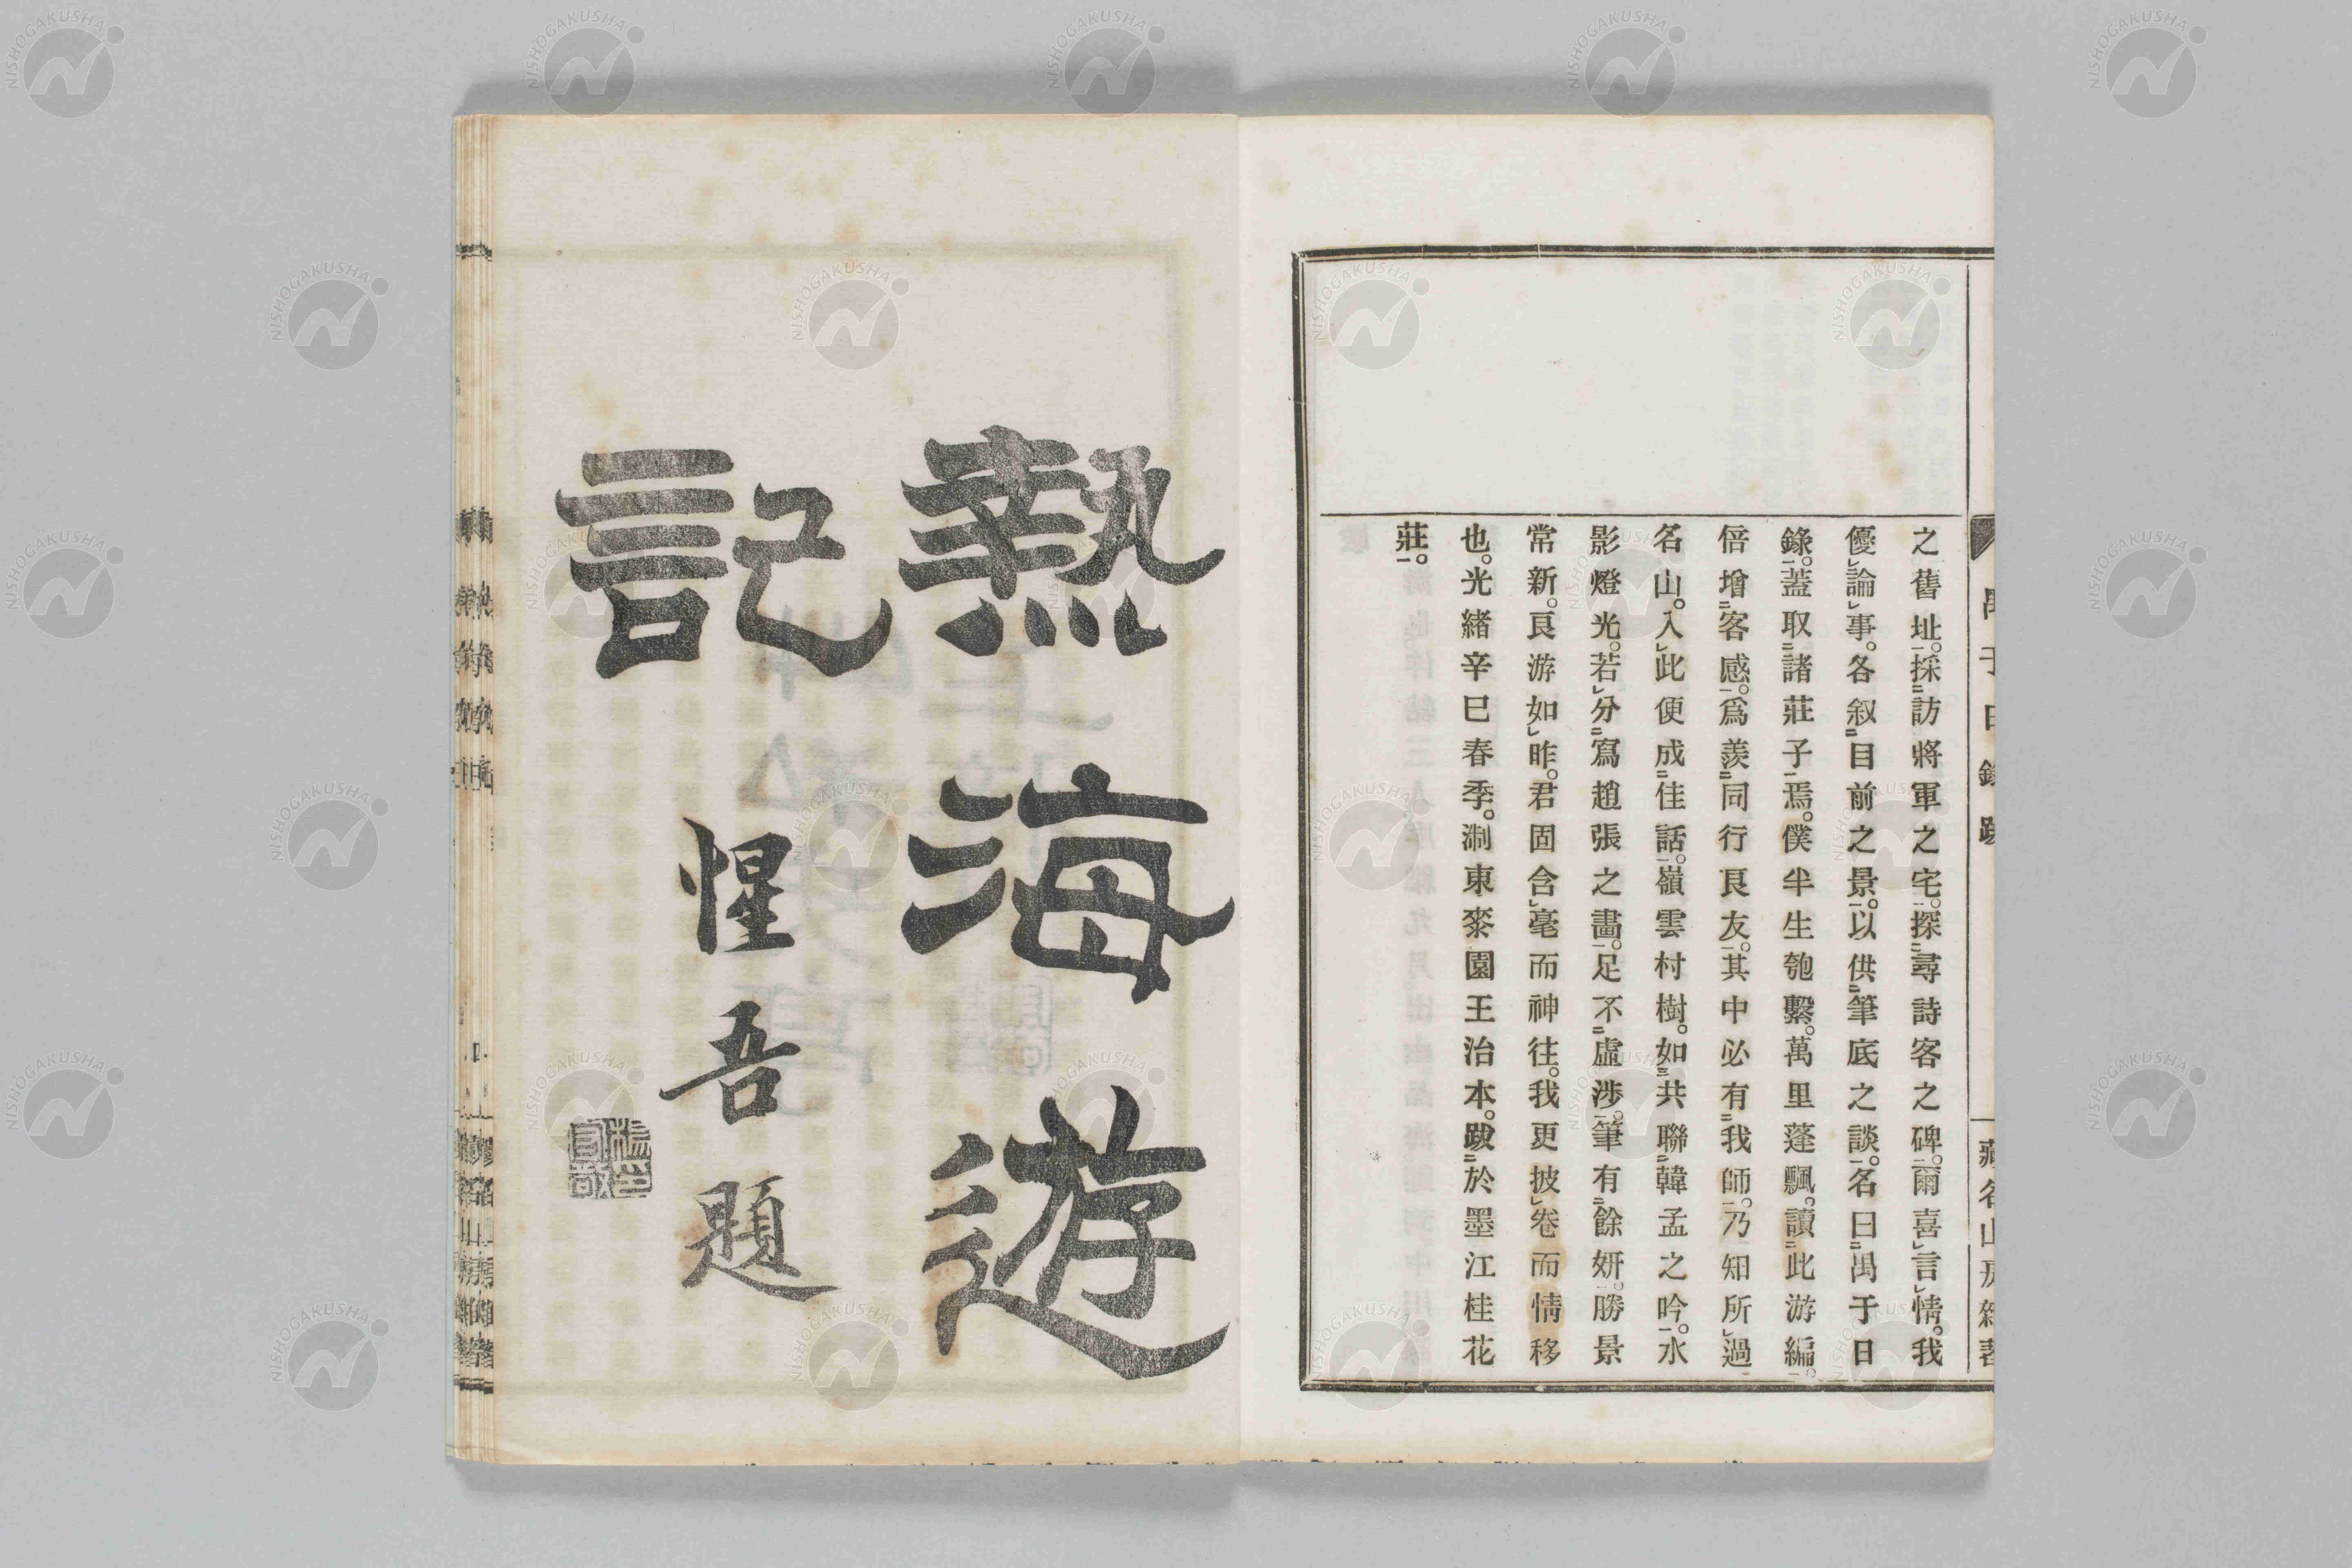 之舊址。採訪將軍之宅。探尋詩客之碑。爾喜言情。我
優論事。各叙目前之景。以供筆底之談。名曰禺于日
錄。蓋取諸莊子焉。僕半生匏繫。萬里蓬飄。讀此游編。
倍增客感。爲羨同行良友。其中必有我師。乃知所過
名山。入此便成佳話。嶺雲村樹。如共聯韓孟之吟。水
影燈光。若分寫趙張之畵。足不虛涉。筆有餘妍。勝景
常新。良游如昨。君固含毫而神往。我更披卷而情移
也。光緒辛巳春季。淛東桼園王治本。跋於墨江桂花
莊。
熱海遊
記
惺吾題
楊印守敬
NISHOGAKUSHA